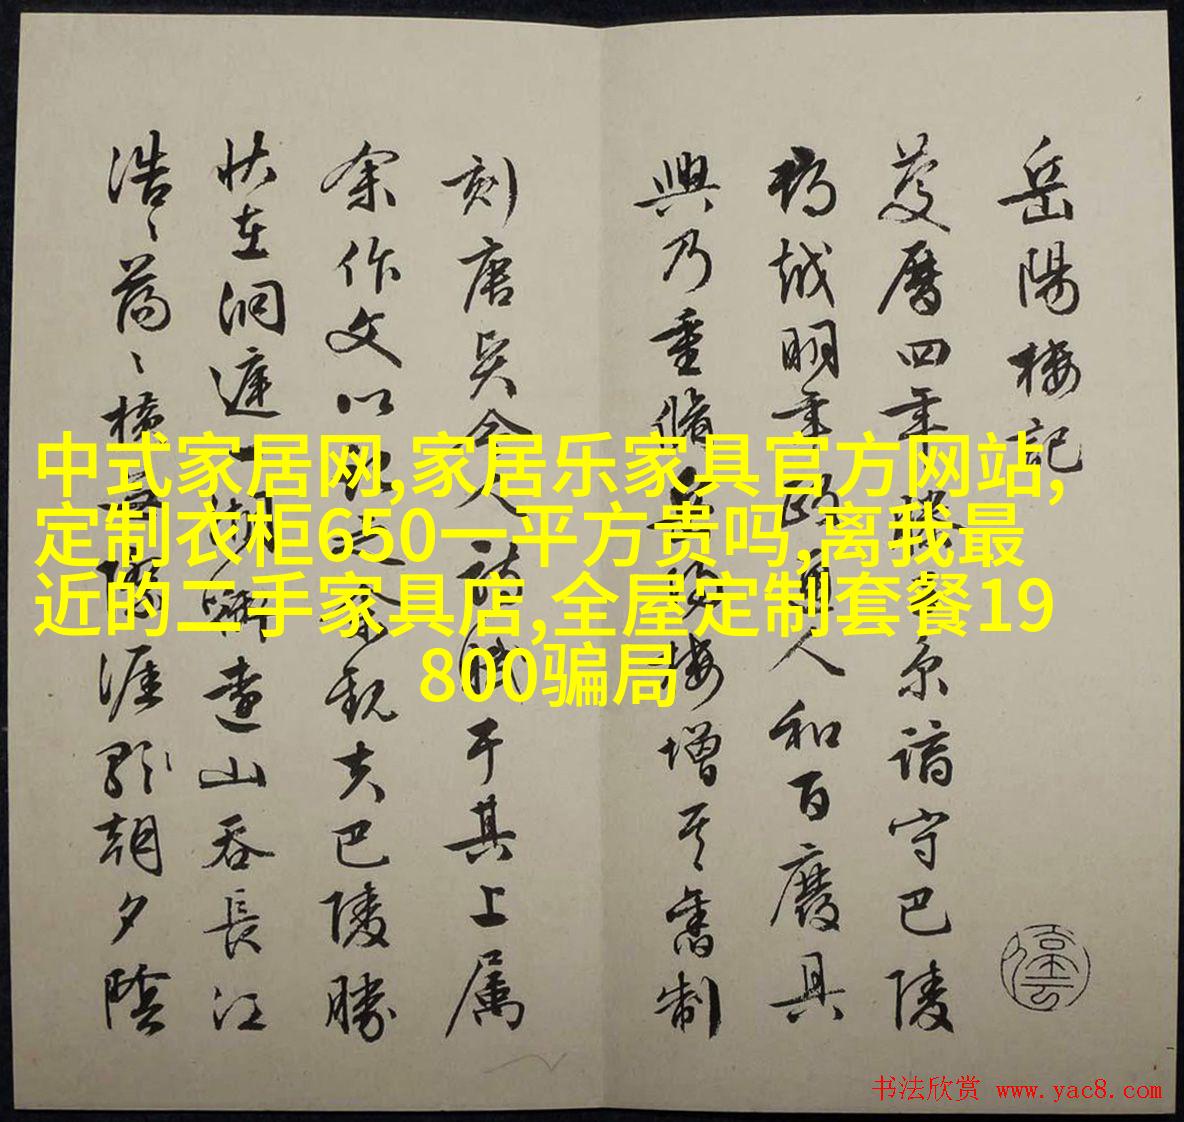 中式家居网,家居乐家具官方网站,
定制衣柜650一平方贵吗,离我最
近的二手家具店,全屋定制套餐19
800骗局
岳陽楼記
慶曆四年 子京謫守巴陵
越明年政通人和百廢具
興乃重脩岳陽楼增其舊制
刻唐賢今人詩賦于其上属
余作文以記之余観夫巴陵勝
状在洞庭一湖銜遠山吞長江
浩〻蕩〻橫無際涯 朝夕陰
书法欣赏 www.yac8.com